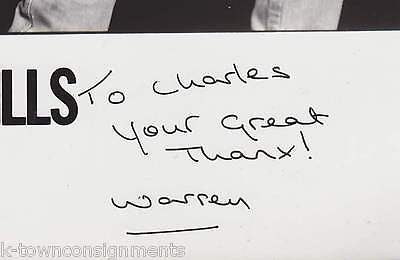 LLS
To Charles
Your Great
Thanx!
Warren
k-townconsignments